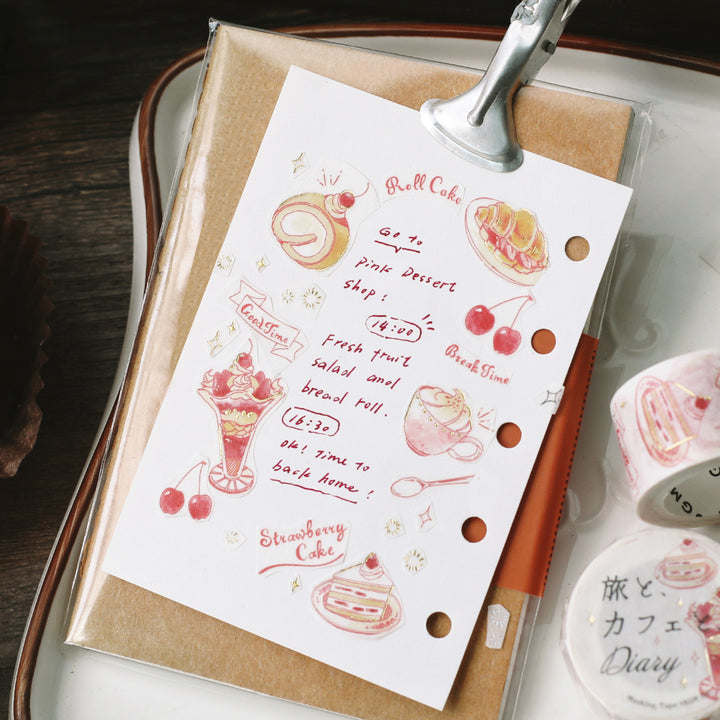 Roll Cake
Go to
Pink Dessert
shop!
14:00
Good Time
Break Time
Fresh fruit
salad and
bread roll.
16:30
ok! Time to
back home!
Strawberry
Cake
旅と、
カフェと
Diary
Masking Tape